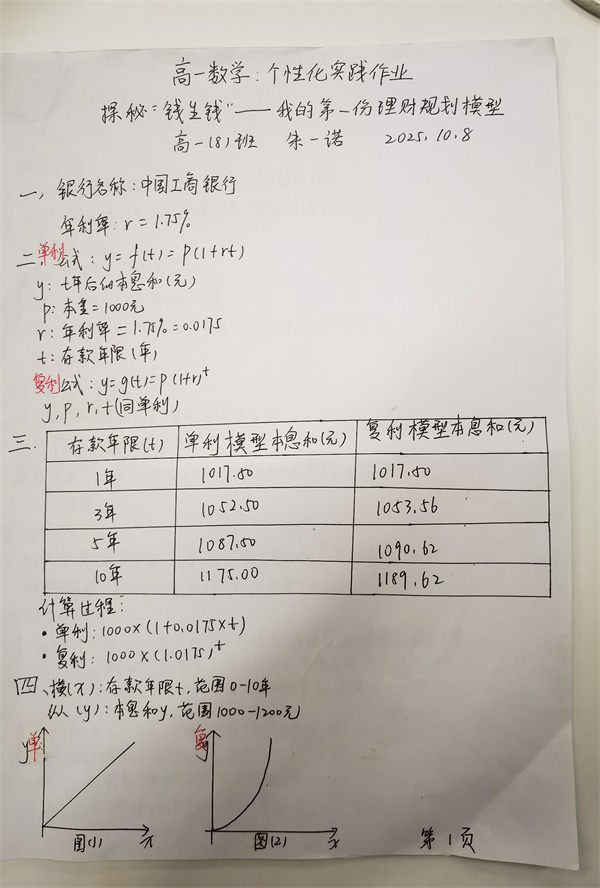 高一数学:个性化实践作业
探秘"钱生钱"——我的第一份理财规划模型
高一(8)班 朱一诺 2025.10.8
一、银行名称:中国工商银行
年利率:r=1.75%
二、单利公式:y=f(t)=p(1+rt)
y:t年后的本息和(元)
p:本金=1000元
r:年利率=1.75%=0.0175
t:存款年限(年)
复利公式:y=g(t)=p(1+r)^t
y,p,r,t(同单利)
三.
存款年限(t) 单利模型本息和(元) 复利模型本息和(元)
1年 1017.50 1017.50
3年 1052.50 1053.56
5年 1087.50 1090.62
10年 1175.00 1189.62
计算过程:
·单利:1000×(1+0.0175×t)
·复利:1000×(1.0175)^t
四、横(x):存款年限t,范围0-10年
纵(y):本息和y,范围1000-1200元
y单 x 图(1)
y复 x 图(2)
第1页